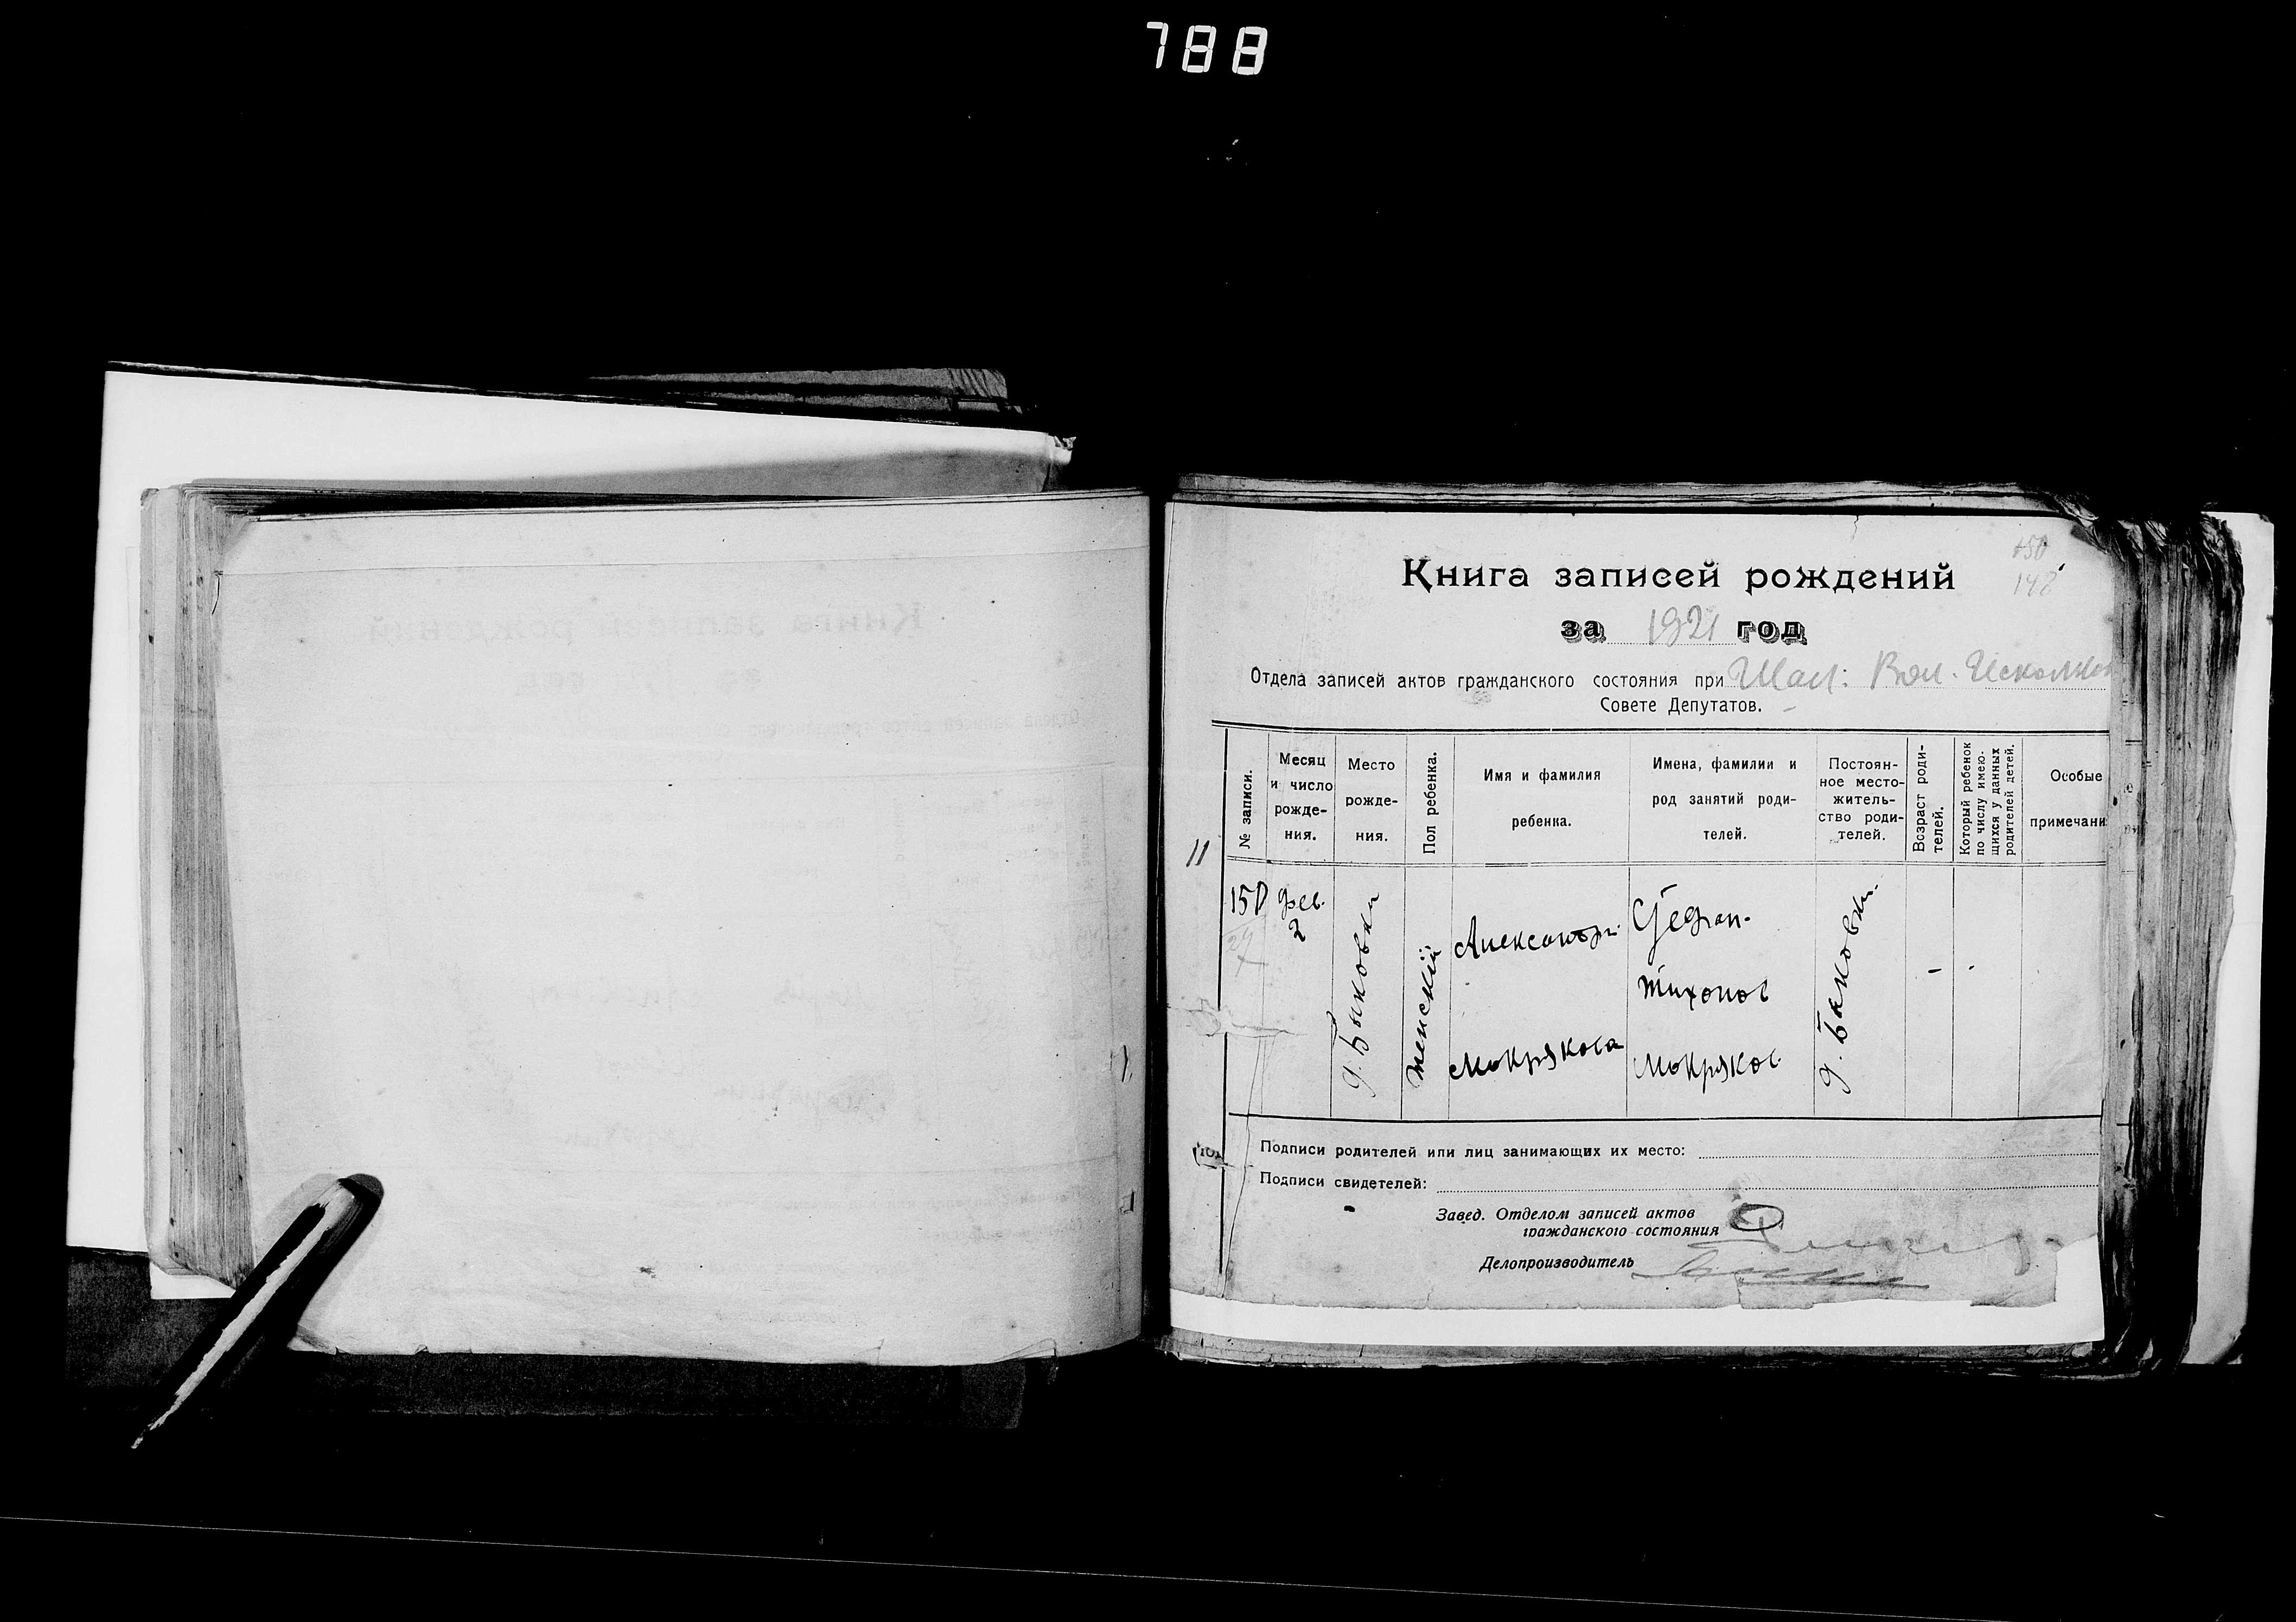 788
150
148
Книга записей рождений
за 1921 год
Отдела записей актов гражданского состояния при Шал: Вол. Исполком
Совете Депутатов.
№ записи.
Месяц и число рожде- ния.
Место рожде- ния.
Пол ребенка.
Имя и фамилия ребенка.
Имена, фамилии и род занятий роди- телей.
Постоян- ное место- житель- ство роди- телей.
Возраст роди- телей.
Который ребенок по числу имею- щихся у данных родителей детей.
Особые примечани
11
150
24
фев.
2
д. Быковки
женский
Александр
Мокрякова
Степан
Тихонов
Мокряков
д. Быковки.
Подписи родителей или лиц занимающих их место:
Подписи свидетелей:
Завед. Отделом записей актов
гражданского состояния
Делопроизводитель